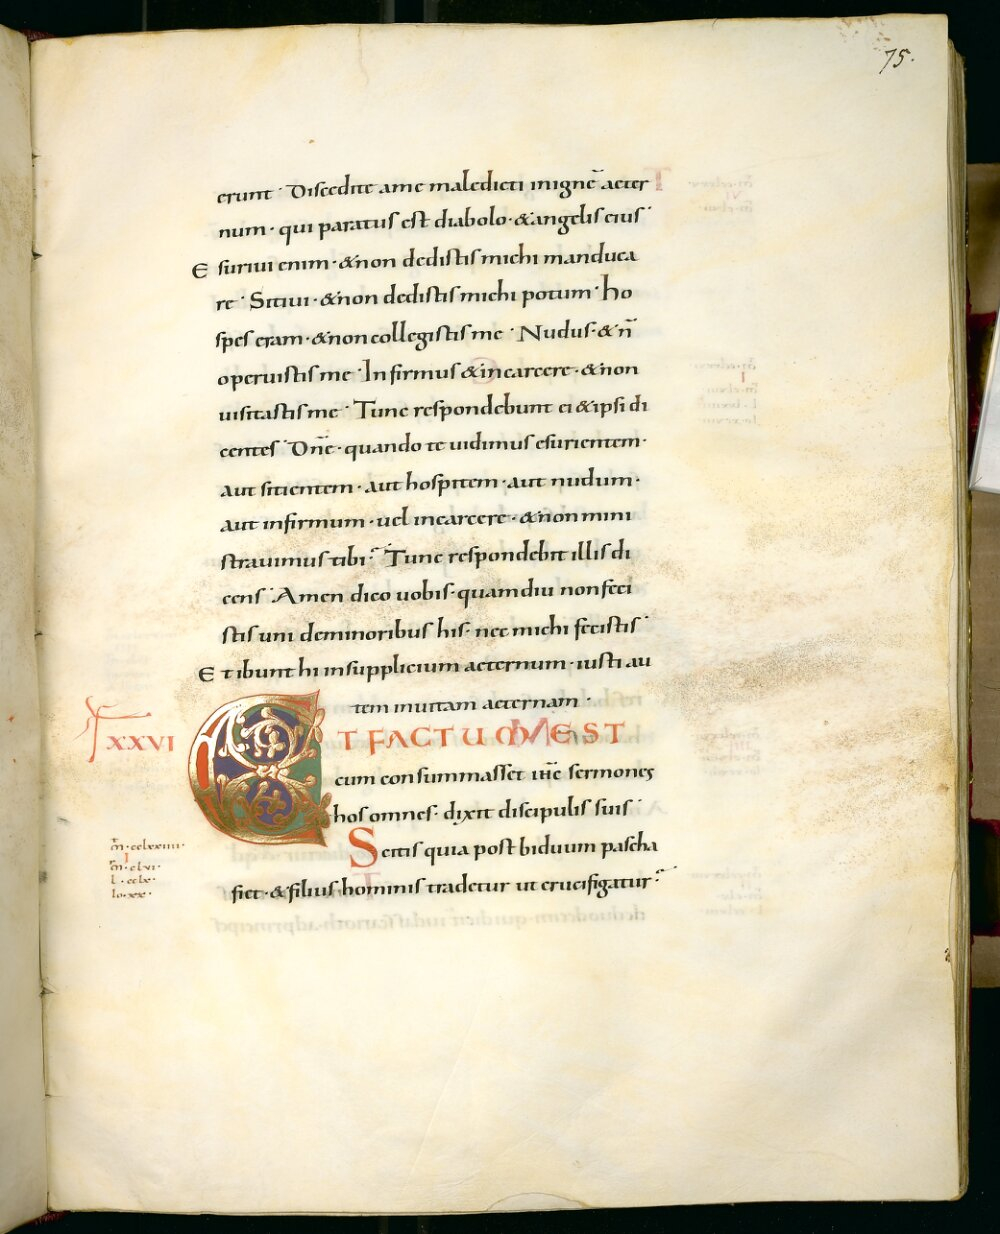 75.
erunt · Discedite a me maledicti in ignē aeter
num · qui paratus est diabolo · & angelis eius ·
Esuriui enim · & non dedistis michi manduca
re · Sitiui · & non dedistis michi potum · ho
spes eram · & non collegistis me · Nudus · & n̄
operuistis me · Infirmus & in carcere · & non
uisitastis me · Tunc respondebunt ei & ipsi di
centes · Dn̄e · quando te uidimus esurientem ·
aut sitientem · aut hospitem · aut nudum ·
aut infirmum · uel in carcere · & non mini
strauimus tibi? Tunc respondebit illis di
cens · Amen dico uobis · quamdiu non feci
stis uni de minoribus his · nec michi fecistis ·
Et ibunt hi in supplicium aeternum · iusti au
tem in uitam aeternam ·
XXVI
ET FACTUM EST
cum consummasset ih̄c sermones
hos omnes · dixit discipulis suis ·
Scitis quia post biduum pascha
fiet · & filius hominis tradetur ut crucifigatur?
m̄ · cclxxiiii ·
I
m̄ · clvi ·
l · cclx ·
io · xx ·